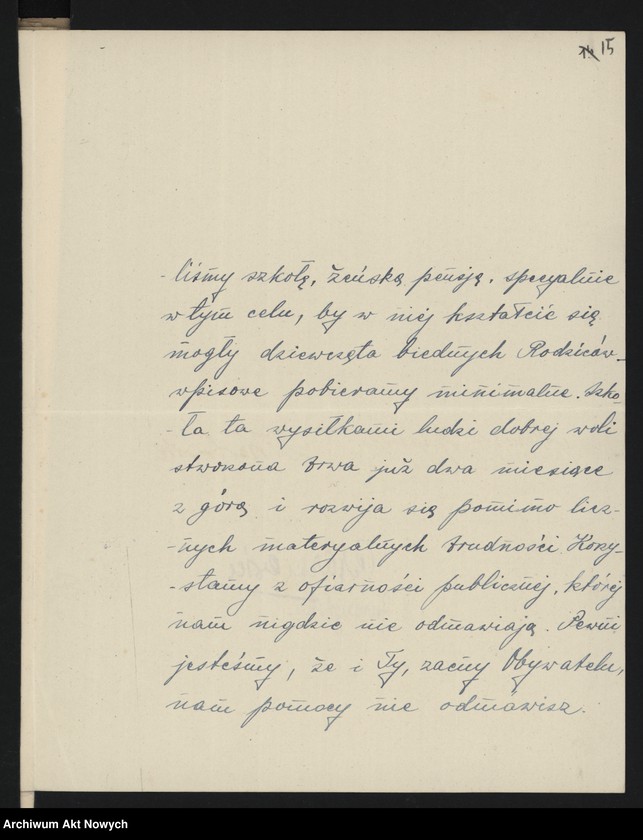 15
- liśmy szkołę, żeńską pensję, specyalnie
w tym celu, by w niej kształcić się
mogły dziewczęta biednych Rodziców -
wpisowe pobieramy minimalne. Szko-
- ła ta wysiłkami ludzi dobrej woli
stworzona trwa już dwa miesiące
z górą i rozwija się pomimo licz-
- nych materyalnych trudności. Korzy-
- stamy z ofiarności publicznej, której
nam nigdzie nie odmawiają. Pewni
jesteśmy, że i Ty, zacny Obywatelu,
nam pomocy nie odmówisz.
Archiwum Akt Nowych